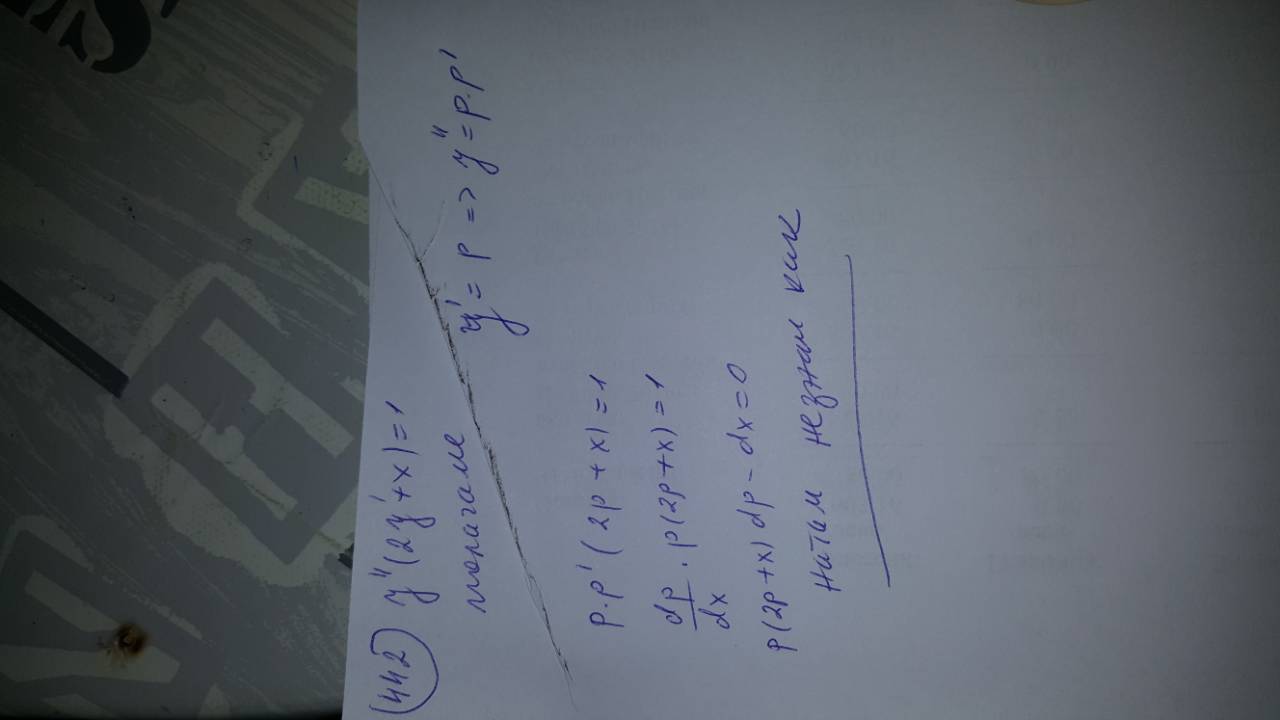 442 y''(2y'+x)=1
полагаме y'=p => y''=p.p'
p.p'(2p+x)=1
dp/dx . p(2p+x)=1
p(2p+x)dp-dx=0
натам незнам как